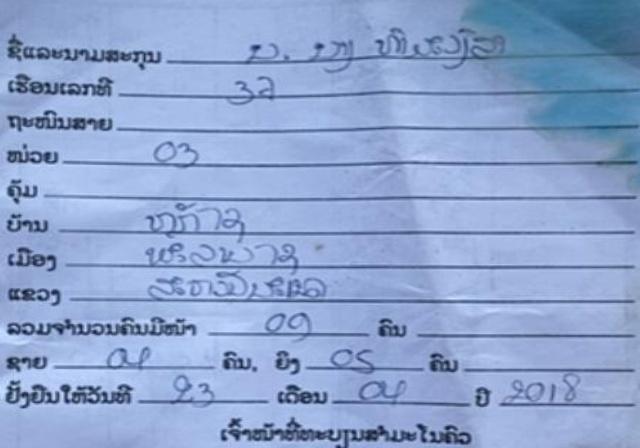 ຊື່ແລະນາມສະກຸນ ທ.
ເຮືອນເລກທີ 37
ຖະໜົນສາຍ
ໜ່ວຍ 03
ຄຸ້ມ
ບ້ານ
ເມືອງ
ແຂວງ ສະຫວັນນະເຂດ
ລວມຈຳນວນຄົນມີໜ້າ 09 ຄົນ
ຊາຍ 04 ຄົນ, ຍິງ 05 ຄົນ
ຢັ້ງຢືນໃຫ້ວັນທີ 23 ເດືອນ 04 ປີ 2018
ເຈົ້າໜ້າທີ່ທະບຽນສຳມະໂນຄົວ